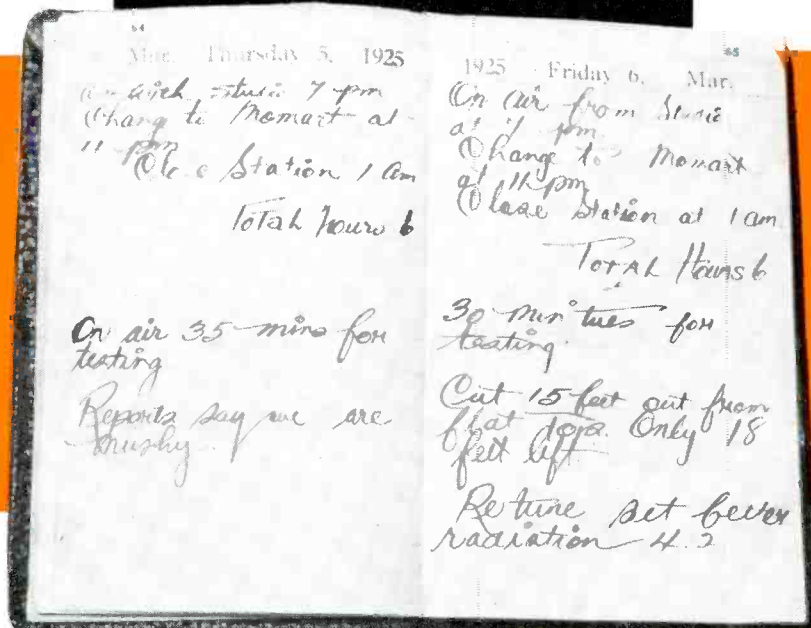 64
Mar. Thursday 5, 1925
with studio 7 pm
Chang to Momart at
11 pm
Close Station 1 am
Total hours 6
On air 35 mins for
testing
Reports say we are
mushy
65
1925 Friday 6, Mar.
On air from Studio
at 7 pm
Change to Momart
at 11 pm
Close Station at 1 am
Total Hours 6
30 min tues for
testing.
Cut 15 feet out from
flat top. Only 18
feet left
Retune set better
radiation 4.2